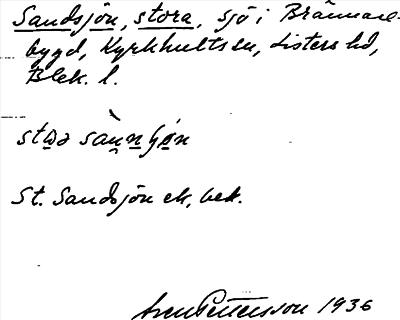 Sandsjön, stora, sjö i Brännare-
bygd, Kyrkhults sn, Listers hd,
Blek. l.
stωə sàn̥n ʃön
St. Sandsjön ek, bek.
Sven Pettersson 1936